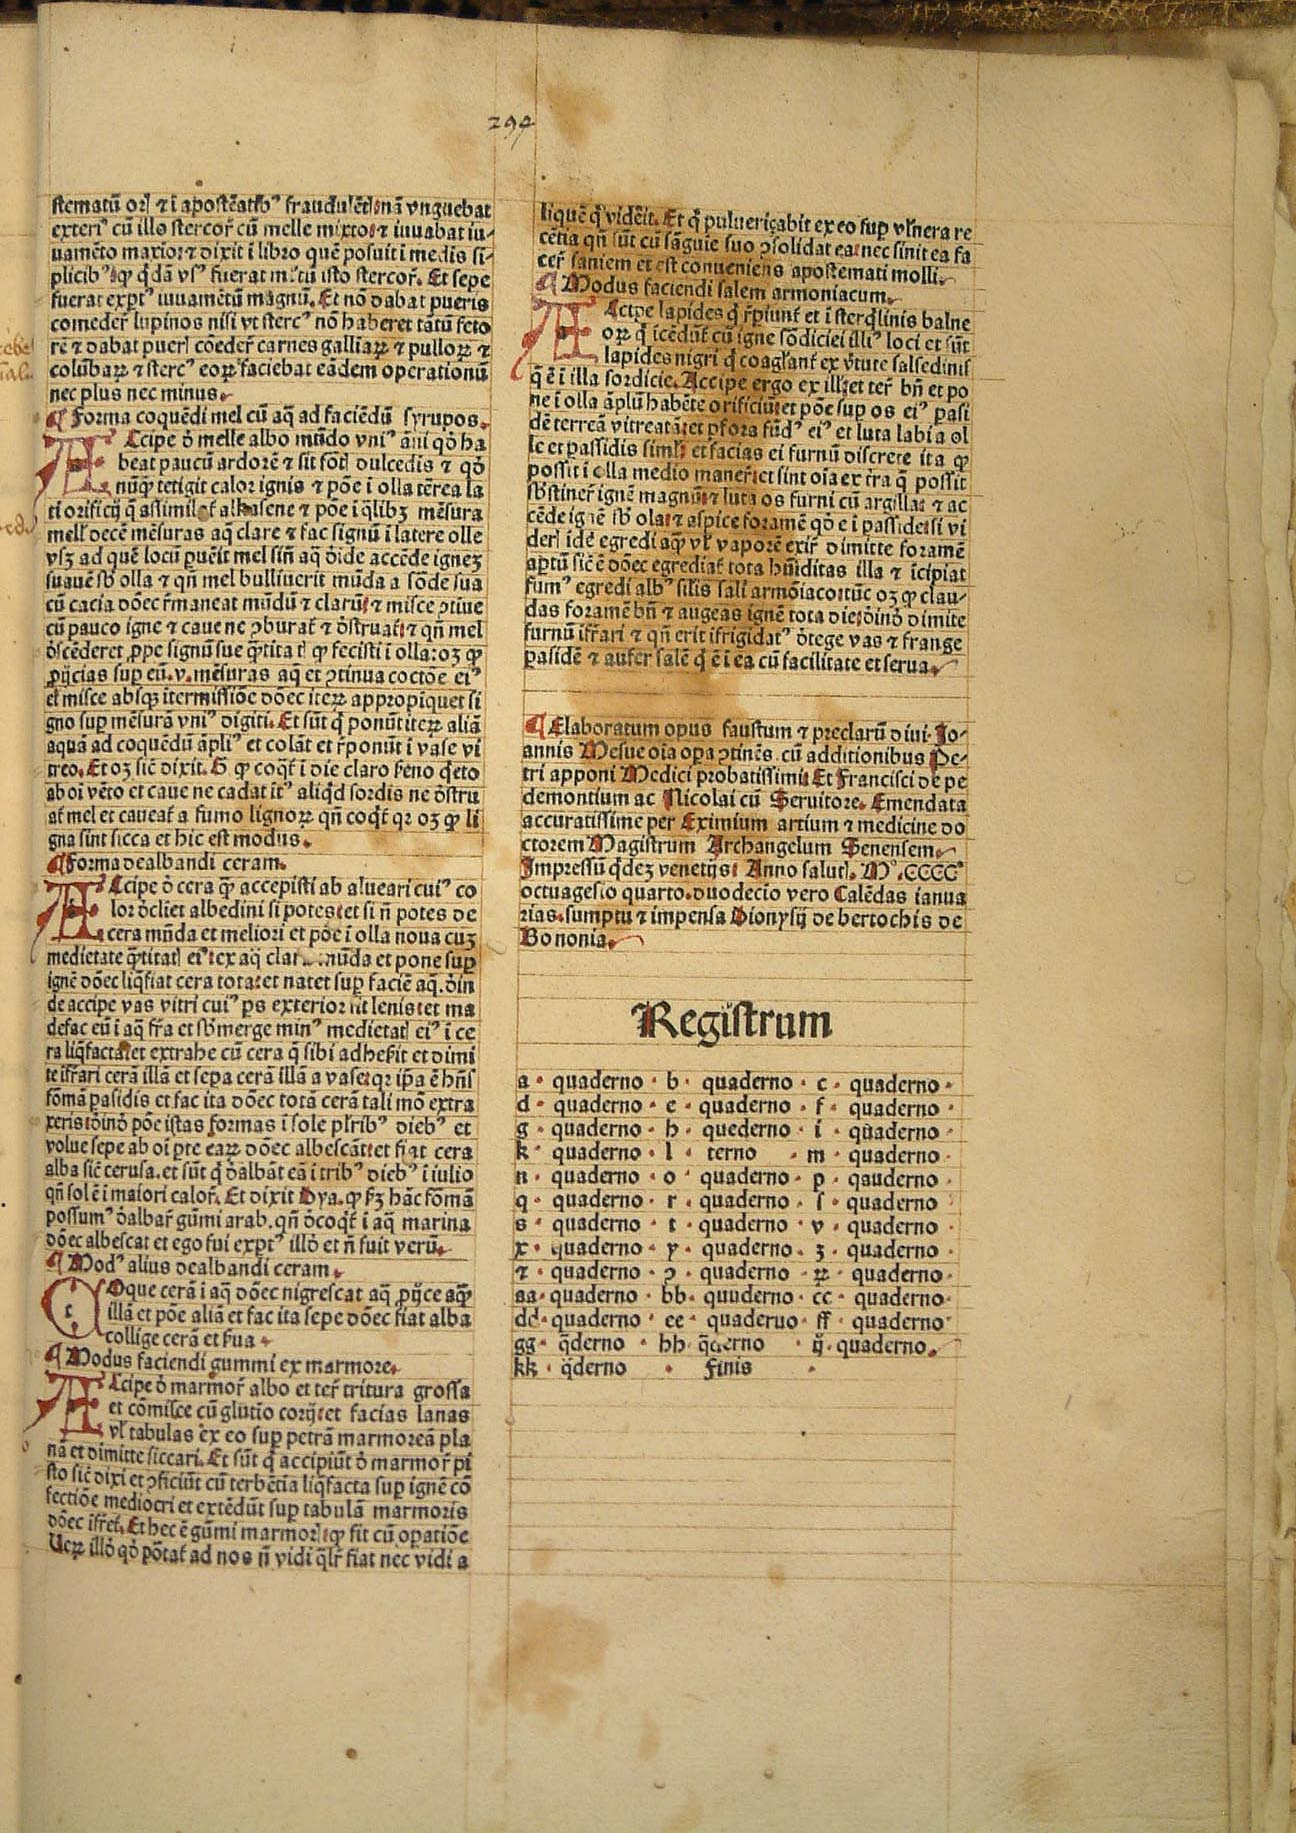 294
stematū orꝭ ⁊ ī apostēatibꝰ fraudulētꝭ: nā vnguebat
exteriꝰ cū illo stercor̄ cū melle mixto: ⁊ iuuabat iu-
uamēto maxior ⁊ dixit ī libro quē posuit ī medis si-
plicibꝰ: qꝫ q̄dā vsꝰ fuerat isto stercor̄. Et sepe
fuerat exptꝰ iuuamētū magnū. Et nō dabat pueris
comeder̄ lupinos nisi vt stercꝰ nō haberet tātū feto
rē ⁊ dabat puerꝭ cōeder̄ carnes galliaꝝ ⁊ pulloꝝ ⁊
colūbaꝝ ⁊ stercꝰ eoꝝ faciebat eādem operationū
nec plus nec minus.
¶ Forma coquēdi mel cū aq̄ ad faciēdū syrupos.
ACcipe ō melle albo mūdo vniꝰ āni qō ha
beat paucū ardorē ⁊ sit dulcedis ⁊ qō
nūq̄ tetigit calor ignis ⁊ pōe ī olla tērea la
ti orificij q̄ assimilat̄ alhasene ⁊ pōe ī q̄libꝫ mēsura
mellꝭ decē mēsuras aq̄ clare ⁊ fac signū ī latere olle
vsqꝫ ad quē locū puēit mel siñ aq̄ ōide accēde igneꝫ
suauē sb̄ olla ⁊ qñ mel bulliuerit mūda a sōde sua
cū cacia dōec r̄maneat mūdū ⁊ clarū: ⁊ misce ꝯtiue
cū pauco igne ⁊ caue ne ꝯburat̄ ⁊ ōstruat̄: ⁊ qñ mel
ōscēderet ꝓpe signū sue q̄titatꝭ qꝫ fecisti ī olla: oꝫ qꝫ
ꝓijcias sup eū .v. mēsuras aq̄ et ꝯtinua coctōe eiꝰ
et misce absqꝫ ītermissiōe dōec iteꝝ appropīquet si
gno sup mēsurā vniꝰ digiti. Et sūt q̄ ponūt iteꝝ aliā
aquā ad coquēdū āpliꝰ et colāt et r̄ponūt ī vase vi
treo. Et oꝫ sic̄ dixit. G̃ qꝫ coq̄t̄ ī die claro sereno q̄eto
ab oī vēto et caue ne cadat ītꝰ aliq̄d sordis ne ōstru
at̄ mel et caueat̄ a fumo lignoꝝ qñ coq̄t̄ qꝛ oꝫ qꝫ li
gna sint sicca et hic est modus.
¶ Forma dealbandi ceram.
ACcipe ō cera q̄ accepisti ab alueari cuiꝰ co
lor ōcliet albedini si potes: et si ñ potes de
cera mūda et meliori et pōe ī olla noua cuꝫ
medietate q̄titatꝭ eiꝰ: ex aq̄ mūda et pone sup
ignē dōec liq̄fiat cera tota: et natet sup faciē aq̄. ōin
de accipe vas vitri cuiꝰ ps exterior sit lenis: et ma
defac eū ī aq̄ fr̄a et sb̄merge minꝰ medietatꝭ eiꝰ ī ce
ra liq̄facta: et extrahe cū cera q̄ sibi adhesit et dimi
te ifr̄ari cerā illā et sepa cerā illā a vase: qꝛ ip̄a ē hñs
fōmā pasidis et fac ita dōec totā cerā tali mō extra
xeris: ōinō pōe istas formas ī sole plr̄ibꝰ diebꝰ et
volue sepe ab oī pte eaꝝ dōec albescāt: et fiat cera
alba sic̄ cerusa. et sūt q̄ ōalbāt eā ī tribꝰ diebꝰ ī iulio
qñ sol ē ī maiori calor̄. Et dixit Dya. qꝫ sꝫ hāc fōmā
possumꝰ ōalbar̄ gūmi arab. qñ ōcoq̄t̄ ī aq̄ marina
dōec albescat et ego fui exptꝰ illō et ñ fuit verū.
¶ Modꝰ alius dealbandi ceram.
COque cerā ī aq̄ dōec nigrescat aq̄ ꝓijce aq̄
illā et pōe aliā et fac ita sepe dōec fiat alba
collige cerā et s̄ua.
¶ Modus faciendi gummi ex marmore.
ACcipe ō marmor̄ albo et ter̄ tritura grossa
et cōmisce cū glutio corij: et facias lanas
vl̄ tabulas ex eo sup petrā marmoreā pla
nā et dimitte siccari. Et sūt q̄ accipiūt ō marmor̄ pi
sto sic̄ dixi et ꝯficiūt cū terbētīa liq̄facta sup ignē cō
fectiōe mediocri et extēdūt sup tabulā marmoris
dōec ifr̄et̄. Et hec ē gūmi marmorꝭ: qꝫ fit cū opatiōe
Ueꝝ illō qō pōtat̄ ad nos ñ vidi q̄lr̄ fiat nec vidi a
liquē q̄ viderit. Et q̄ pulueriçabit ex eo sup vlnera re
cētia qñ sūt cū sāguie suo ꝯsolidat ea: nec sinit ea fa
cer̄ saniem et est conueniens apostemati molli.
¶ Modus faciendi salem armoniacum.
ACcipe lapides q̄ r̄piunt̄ et ī sterq̄linis balne
oꝝ q̄ icēdūt̄ cū igne sōdiciei illiꝰ loci et sūt
lapides nigri q̄ coagl̄ant̄ ex v̄tute salsedinis
q̄ ē ī illa sordicie. Accipe ergo ex illꝭ: et ter̄ bñ et po
ne ī olla āplū habēte orificiū: et pōe sup os eiꝰ pasi
dē terreā vitreatā: et pfora fūdꝰ eiꝰ et luta labia ol
le et passidis siml̄: et facias ei furnū discrete ita qꝫ
possit ī olla medio maner̄: et sint oīa extra q̄ possit
sb̄stiner̄ ignē magnū: ⁊ luta os furni cū argilla: ⁊ ac
cēde ignē sb̄ ola: ⁊ aspice foramē qō e ī passide: si vi
derꝭ idē egredi aq̄ vl̄ vaporē exir̄ dimitte foramē
aptū sic̄ ē dōec egrediat̄ tota hūiditas illa ⁊ īcipiat
fumꝰ egredi albꝰ silis sali armōiaco: tūc oꝫ qꝫ clau-
das foramē bñ ⁊ augeas ignē tota die: ōinō dimite
furnū ifr̄ari ⁊ qñ erit ifrigidatꝰ ōtege vas ⁊ frange
pasidē ⁊ aufer salē q̄ ē ī ea cū facilitate et serua.
¶ Elaboratum opus faustum ⁊ preclarū diui Jo-
annis Mesue oīa opa ꝯtinēs cū additionibus Pe-
tri apponi Medici probatissimi: Et Francisci de pe
demontium ac Nicolai cū Seruitore. Emendata
accuratissime per Eximium artium ⁊ medicine do
ctorem Magistrum Archangelum Senensem.
Impressū q̄deꝫ venetijs: Anno salutꝭ. Mº.CCCCº
octuagesīo quarto. duodecīo vero Calēdas ianua
rias. sumptu ⁊ impensa Dionysij de bertochis de
Bononia.
Registrum
a · quaderno · b · quaderno · c · quaderno ·
d · quaderno · e · quaderno · f · quaderno ·
g · quaderno · h · quederno · i · quaderno ·
k · quaderno · l · terno · m · quaderno ·
n · quaderno · o · quaderno · p · qauderno ·
q · quaderno · r · quaderno · ſ · quaderno
s · quaderno · t · quaderno · v · quaderno
x · quaderno · y · quaderno · z · quaderno ·
⁊ · quaderno · ꝯ · quaderno · ꝝ · quaderno ·
aa · quaderno · bb · quuderno · cc · quaderno ·
dd · quaderno · ee · quaderuo · ff · quaderno ·
gg · q̄derno · hh · q̄derno · ij · quaderno .
kk · q̄derno · Finis ·